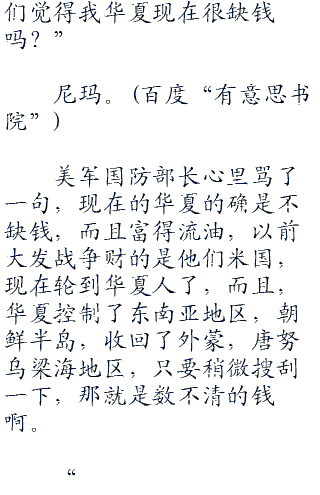 们觉得我华夏现在很缺钱
吗？”
尼玛。(百度“有意思书
院”)
美军国防部长心里骂了
一句，现在的华夏的确是不
缺钱，而且富得流油，以前
大发战争财的是他们米国，
现在轮到华夏人了，而且，
华夏控制了东南亚地区，朝
鲜半岛，收回了外蒙，唐努
乌梁海地区，只要稍微搜刮
一下，那就是数不清的钱
啊。
“